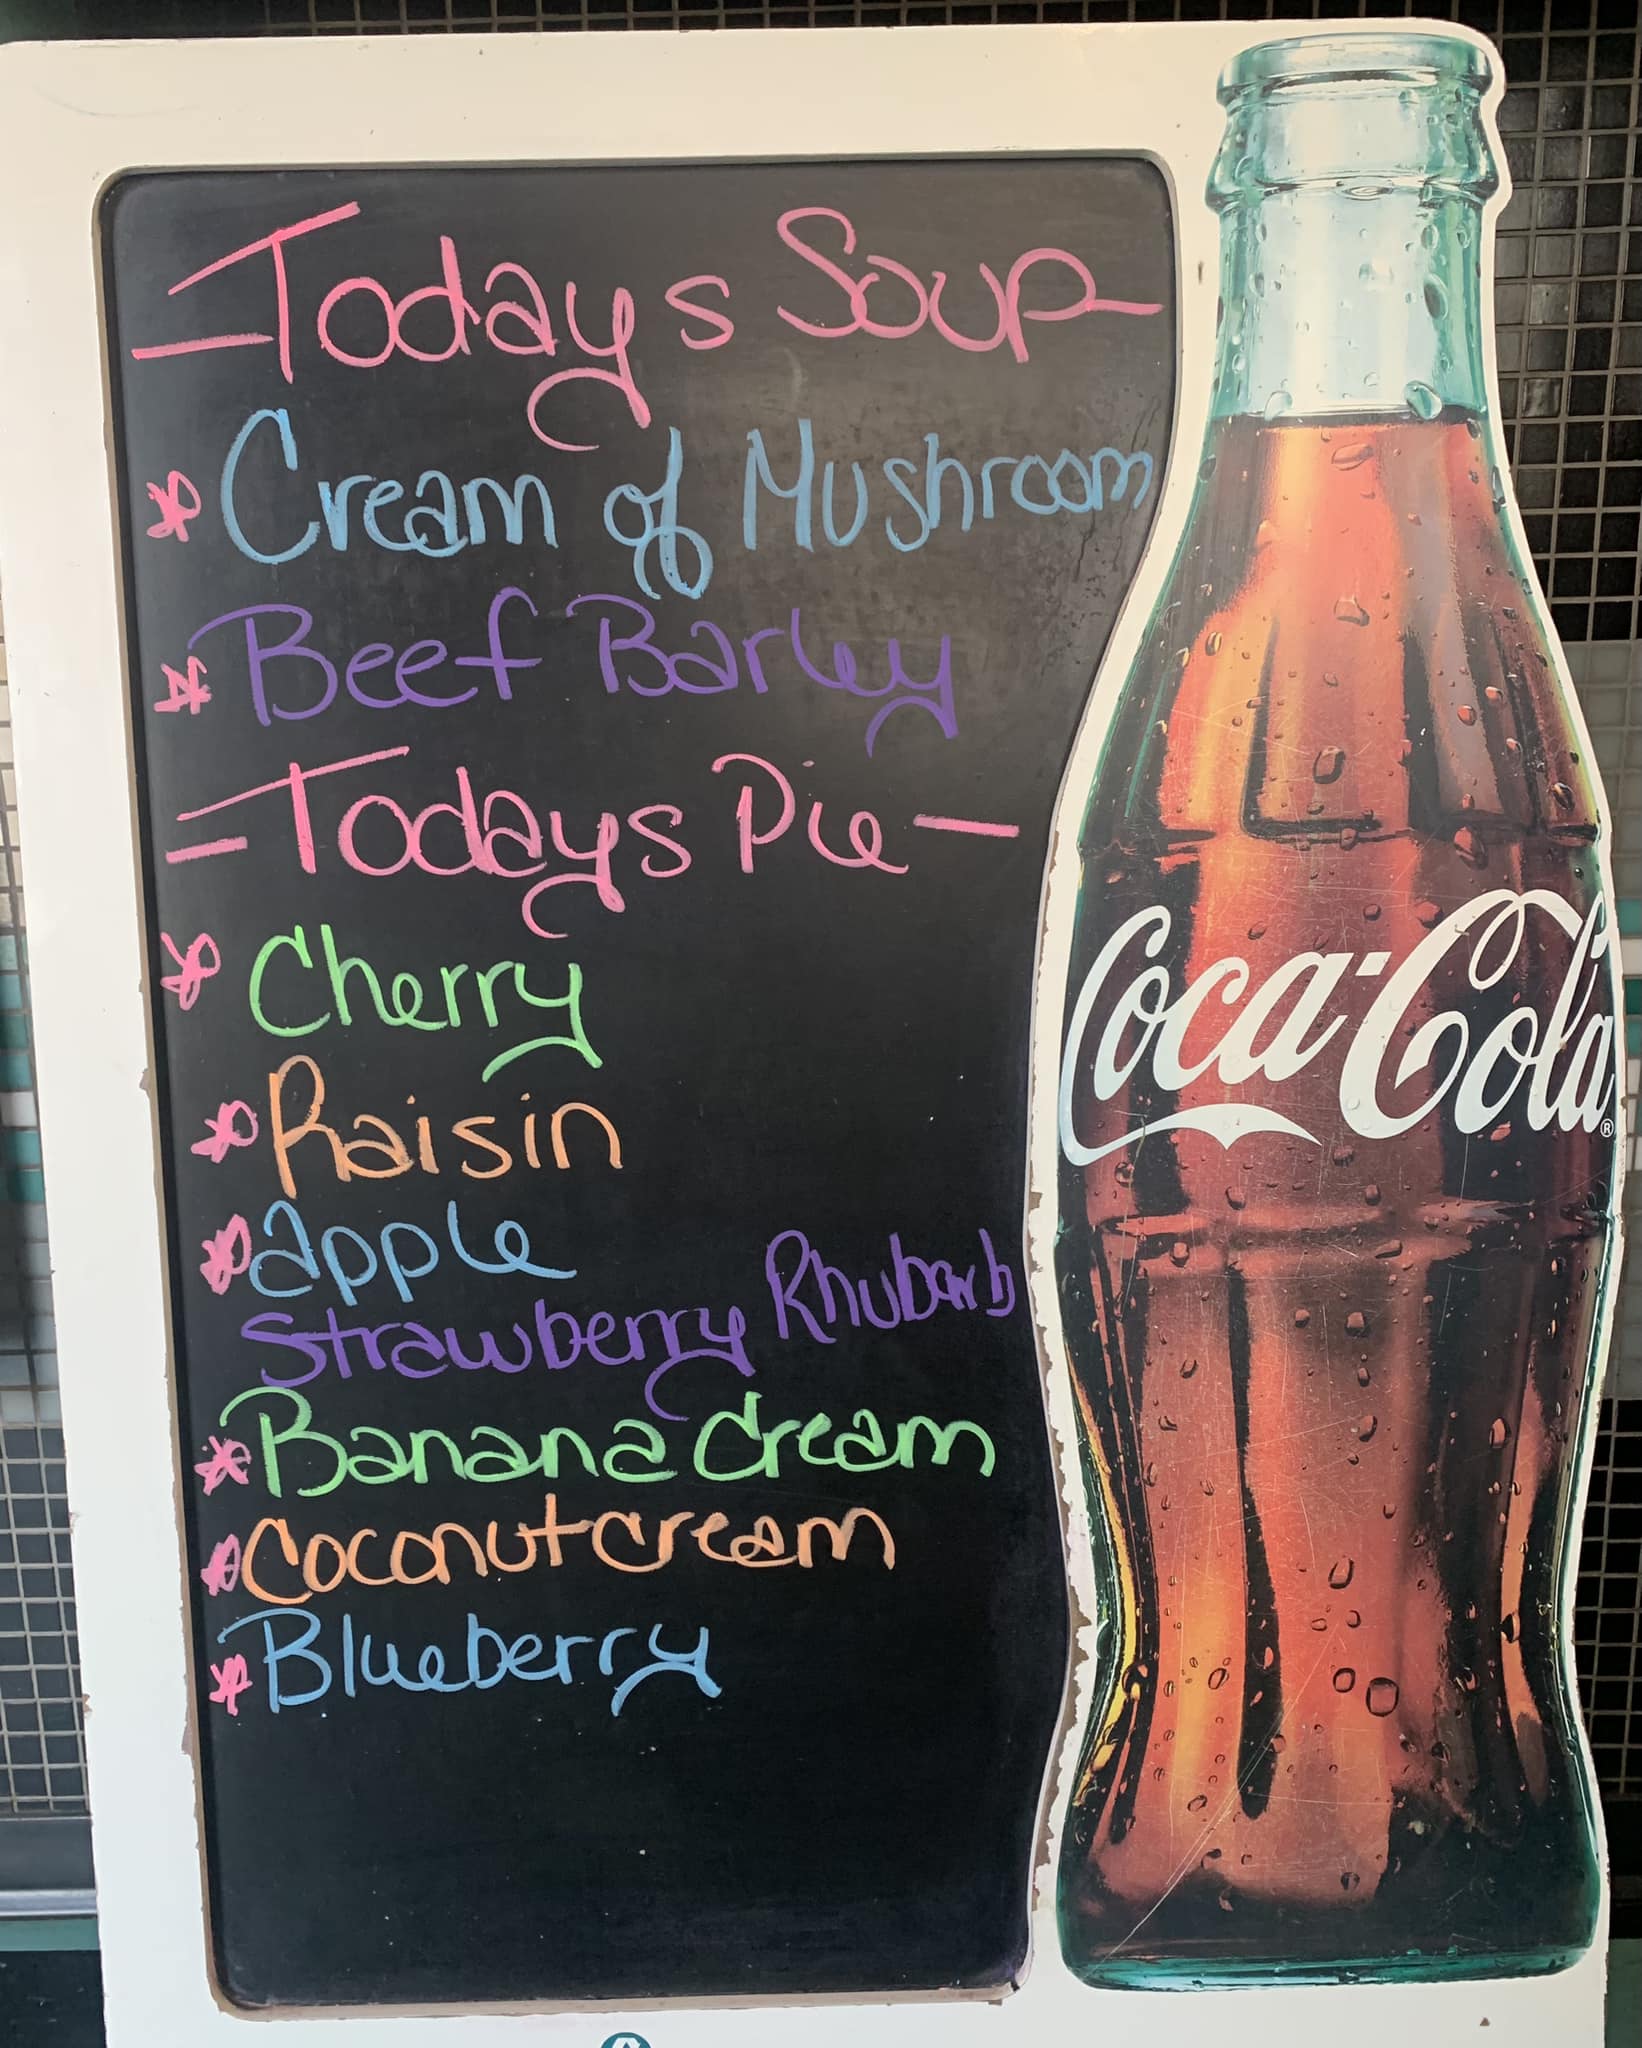 Todays Soup
Cream of Mushroom
Beef Barley
Todays Pie
Cherry
Raisin
apple
Strawberry Rhubarb
Banana Cream
Coconut cream
Blueberry
Coca-Cola®